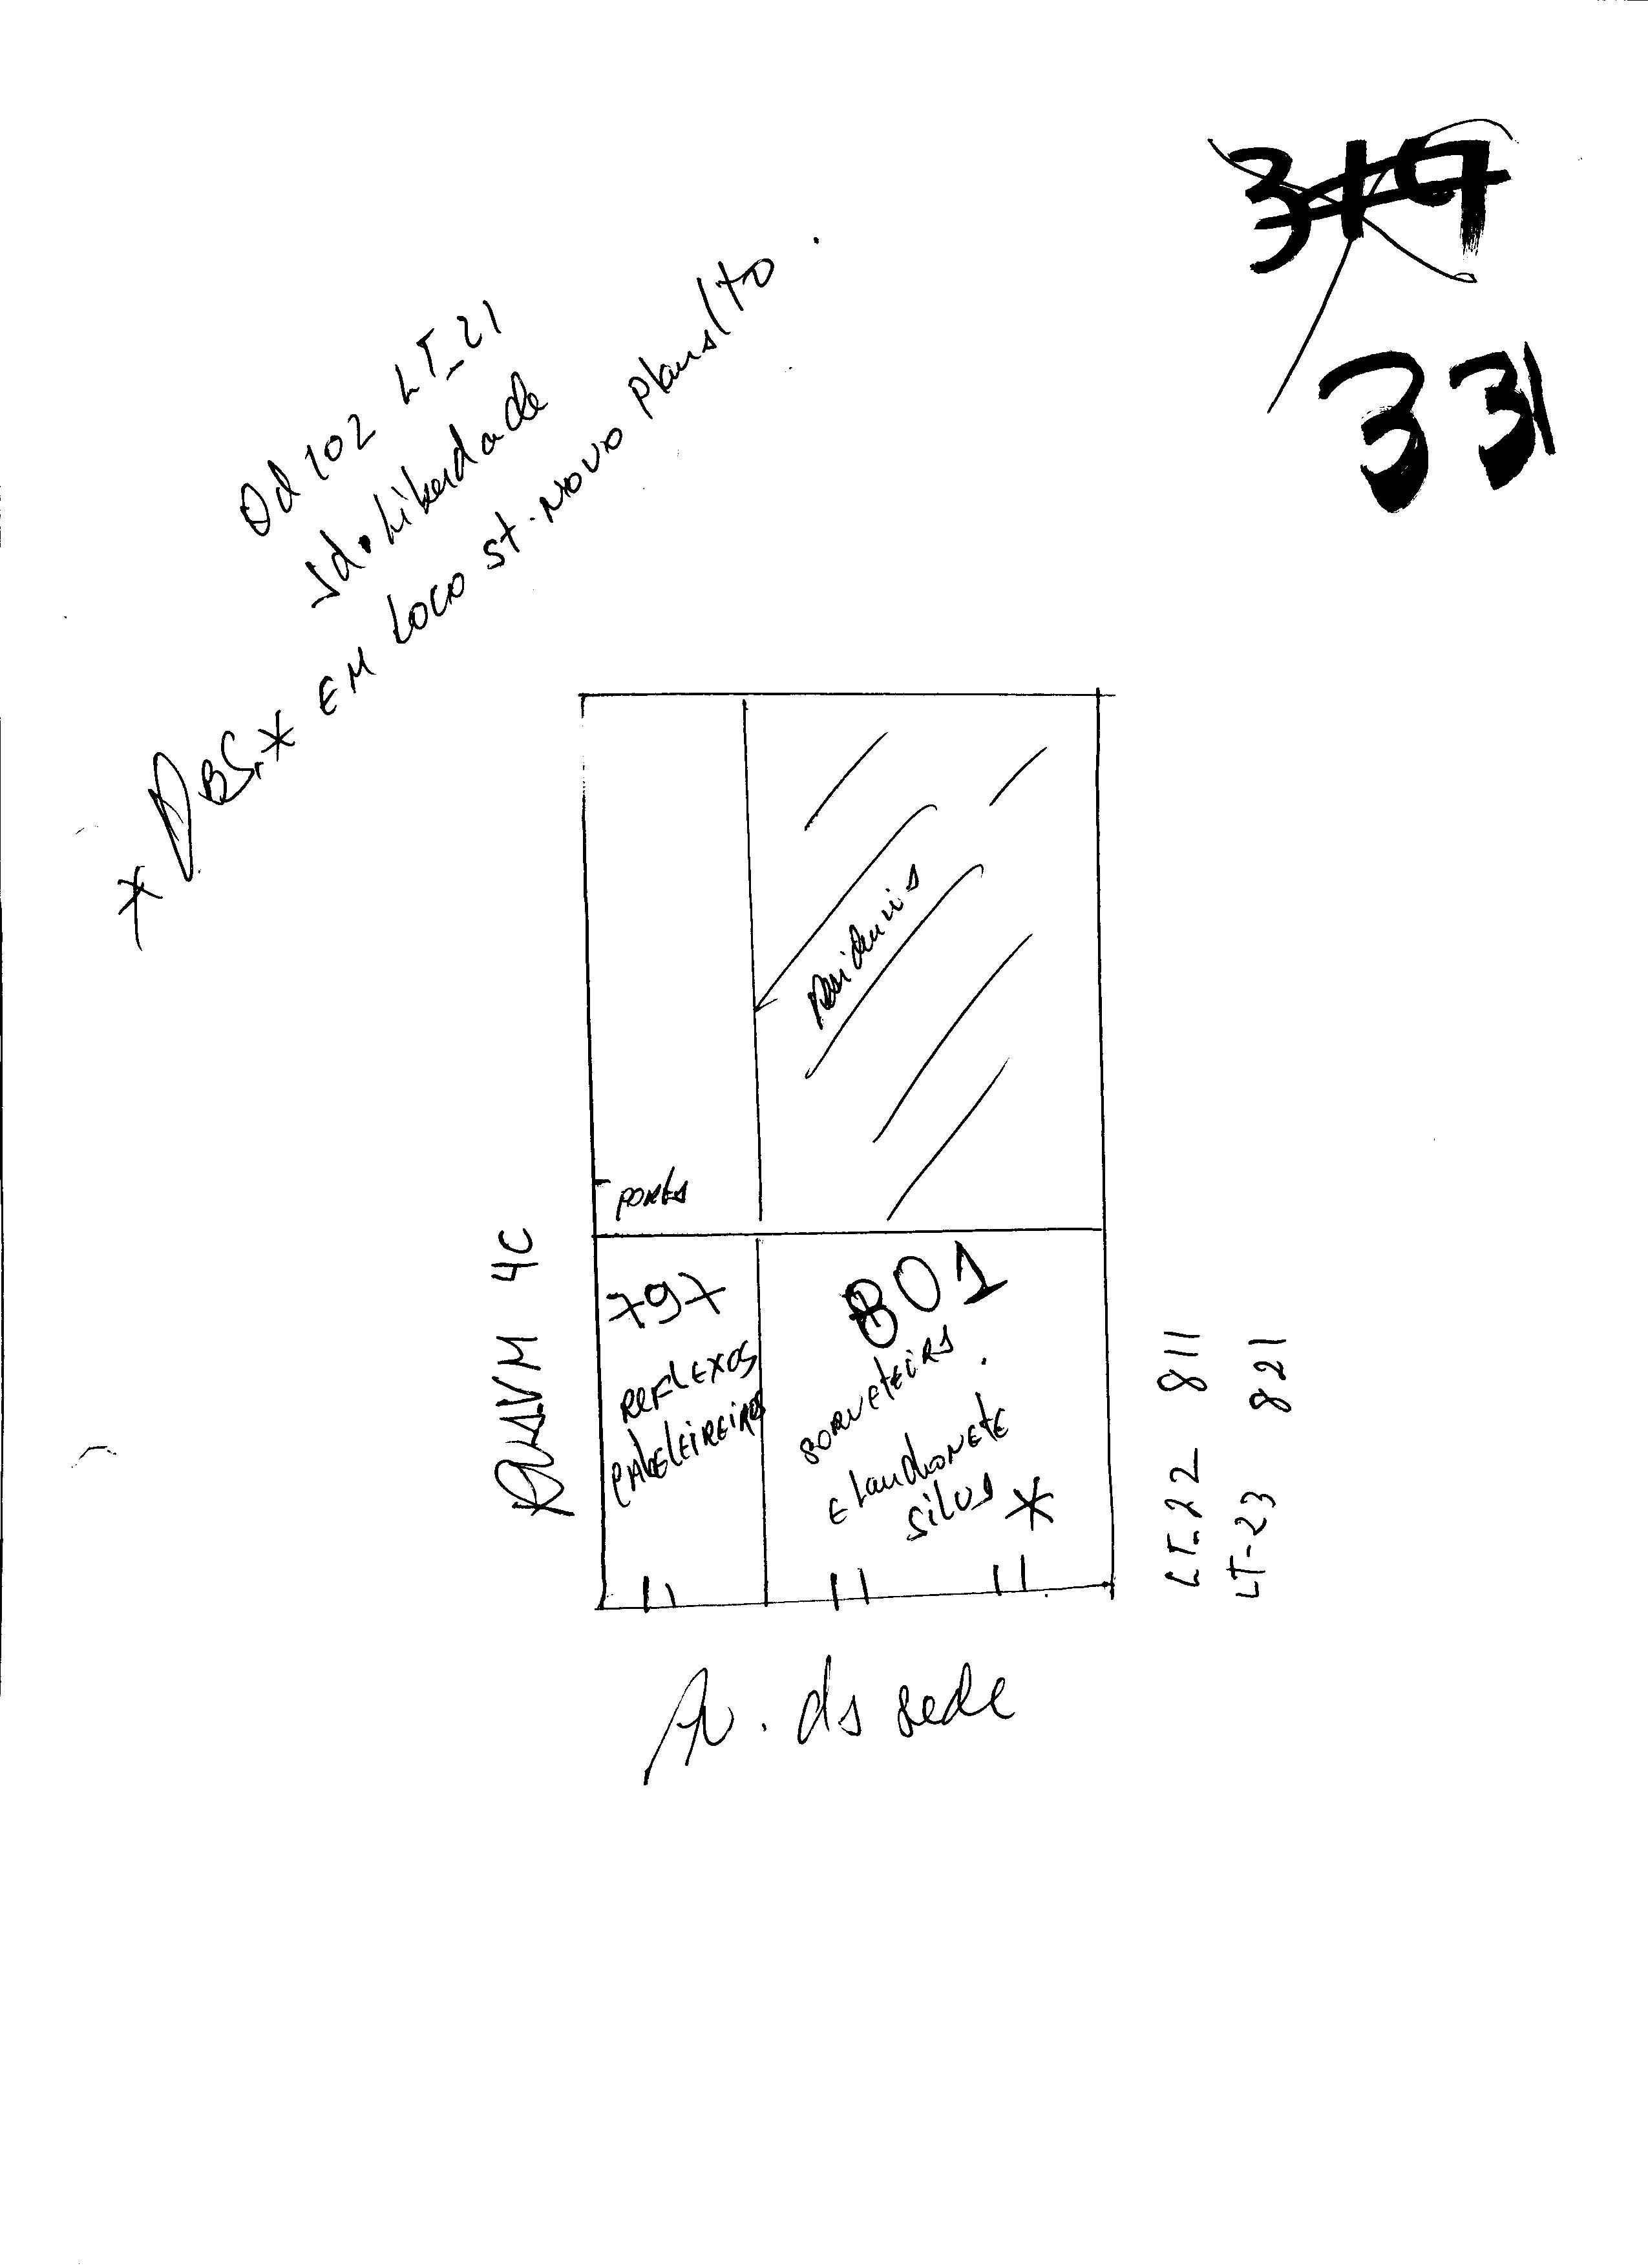 319
331
Qd 102 LT-21
Jd. Liberdade
* OBS.* EM Loco st. Novo planalto.
Residencia
porta
RUA VM 4C
797
REFLEXOS
CABELEIREIROS
801
SORVETEIRA
E Lanchonete
Silva *
LT-22 811
LT-23 821
Av. da sede